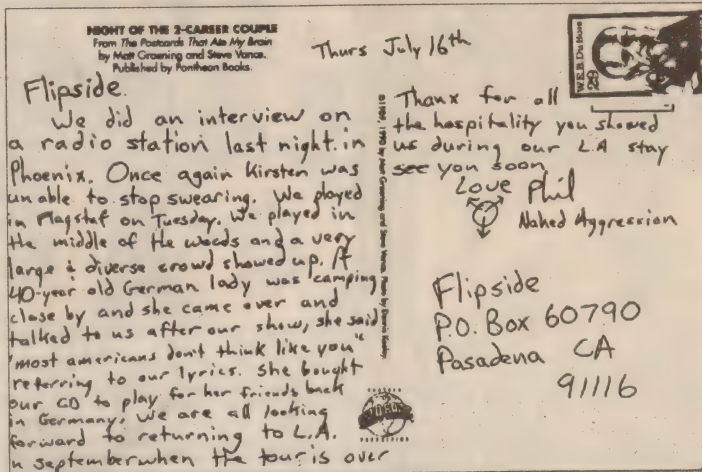 NIGHT OF THE 2-CAREER COUPLE
From The Postcards That Ate My Brain
by Matt Groening and Steve Vance.
Published by Pantheon Books.
Thurs July 16th
Flipside.
We did an interview on
a radio station last night in
Phoenix. Once again Kirsten was
unable to stop swearing. We played
in Flagstaf on Tuesday. We played in
the middle of the woods and a very
large & diverse crowd showed up. A
40-year old German lady was camping
close by and she came over and
talked to us after our show, she said
"most americans don't think like you"
referring to our lyrics. She bought
our CD to play for her friends back
in Germany. We are all looking
forward to returning to L.A.
n september when the tour is over
©1989, 1990 by Matt Groening and Steve Vance. Photo by Dennis Keeley.
Thanx for all
the hospitality you showed
us during our L.A stay
see you soon
Love Phil
Naked Aggression
W.E.B. Du Bois
29
Flipside
P.O. Box 60790
Pasadena CA
91116